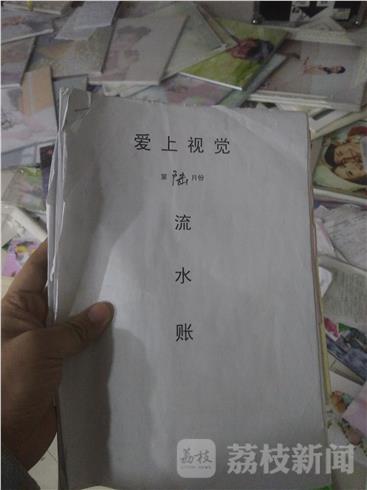 爱上视觉
第陆月份
流
水
账
荔枝
荔枝新闻